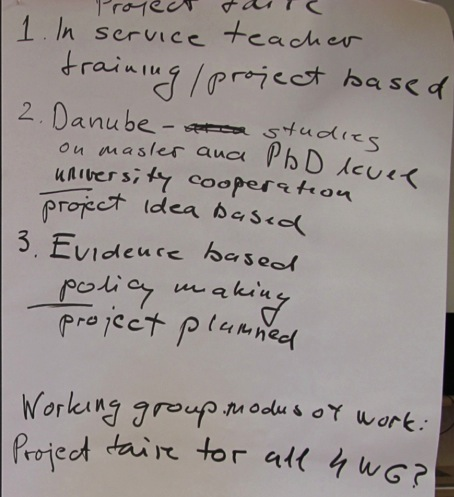 Project faire
1. In service teacher
training/project based
2. Danube - studies
on master and PhD level
university cooperation
project idea based
3. Evidence based
policy making
project planned
Working group.modus of work:
Project faire for all 4 WG?